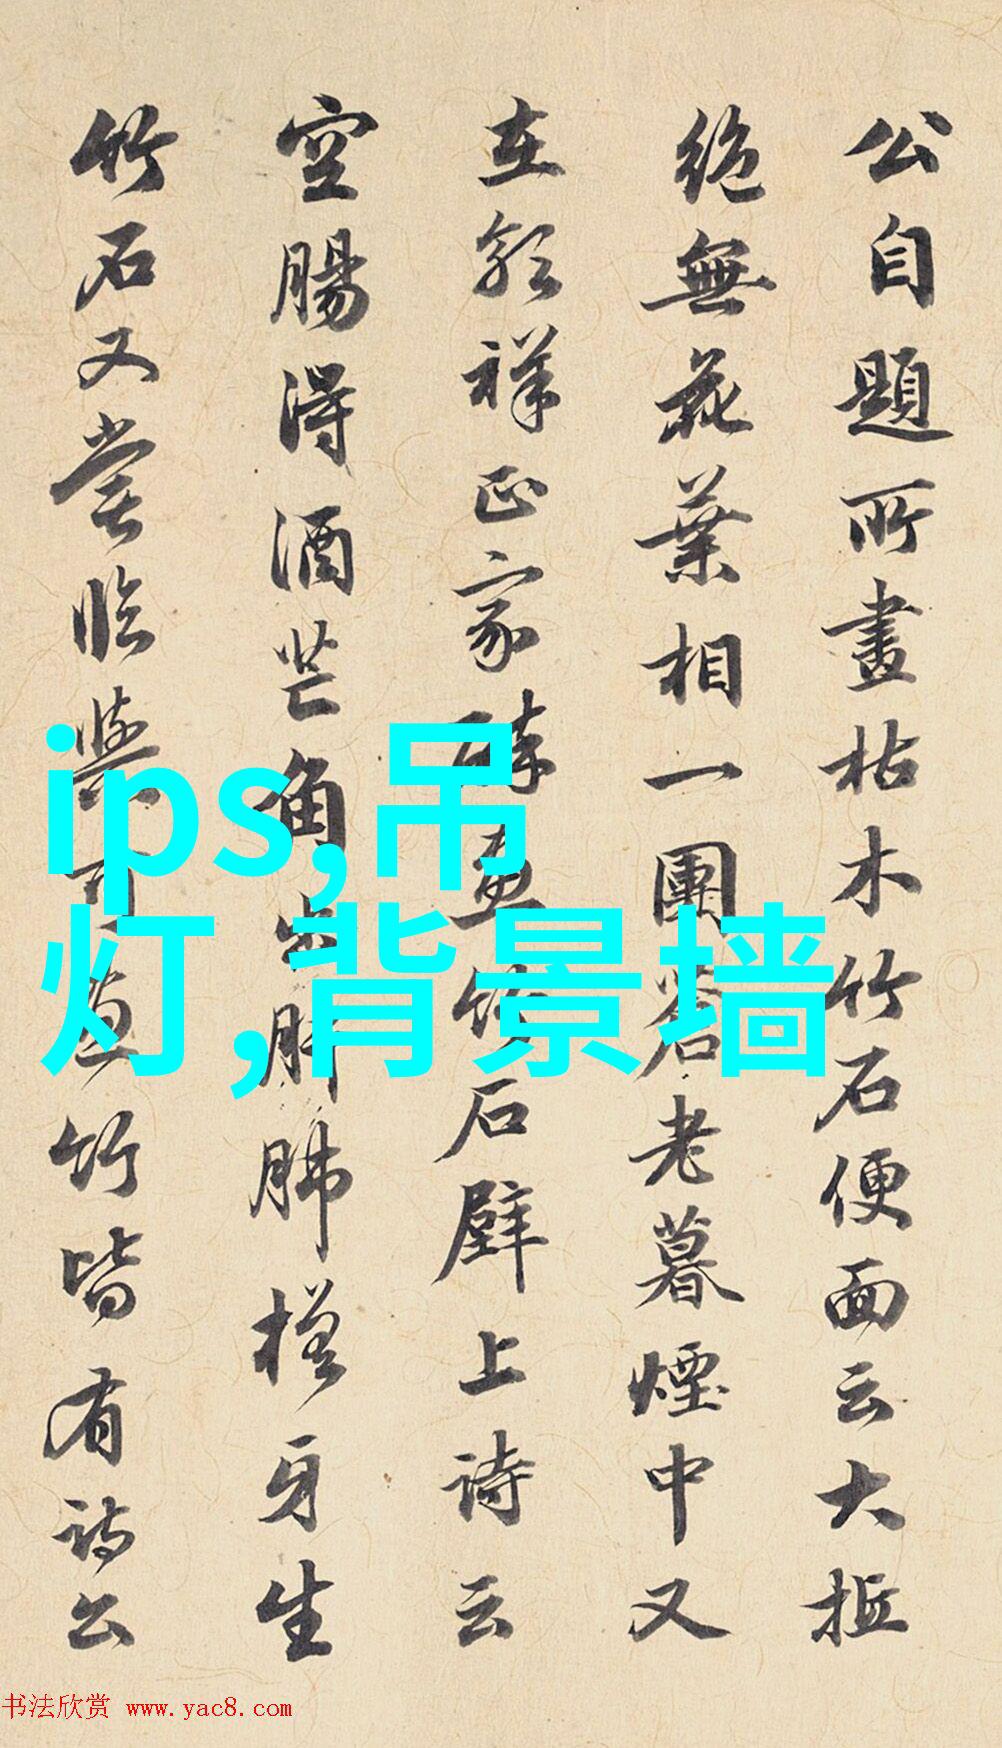 公自題所畫枯木竹石便面云大抵
絶無花葉相一團蒼老暮煙中又
在郭祥正家醉畫竹石壁上詩云
空腸得酒芒角出肝肺槎牙生
竹石又嘗臨與可畫竹皆有詩公
ips,吊
灯,背景墙
书法欣赏 www.yac8.com